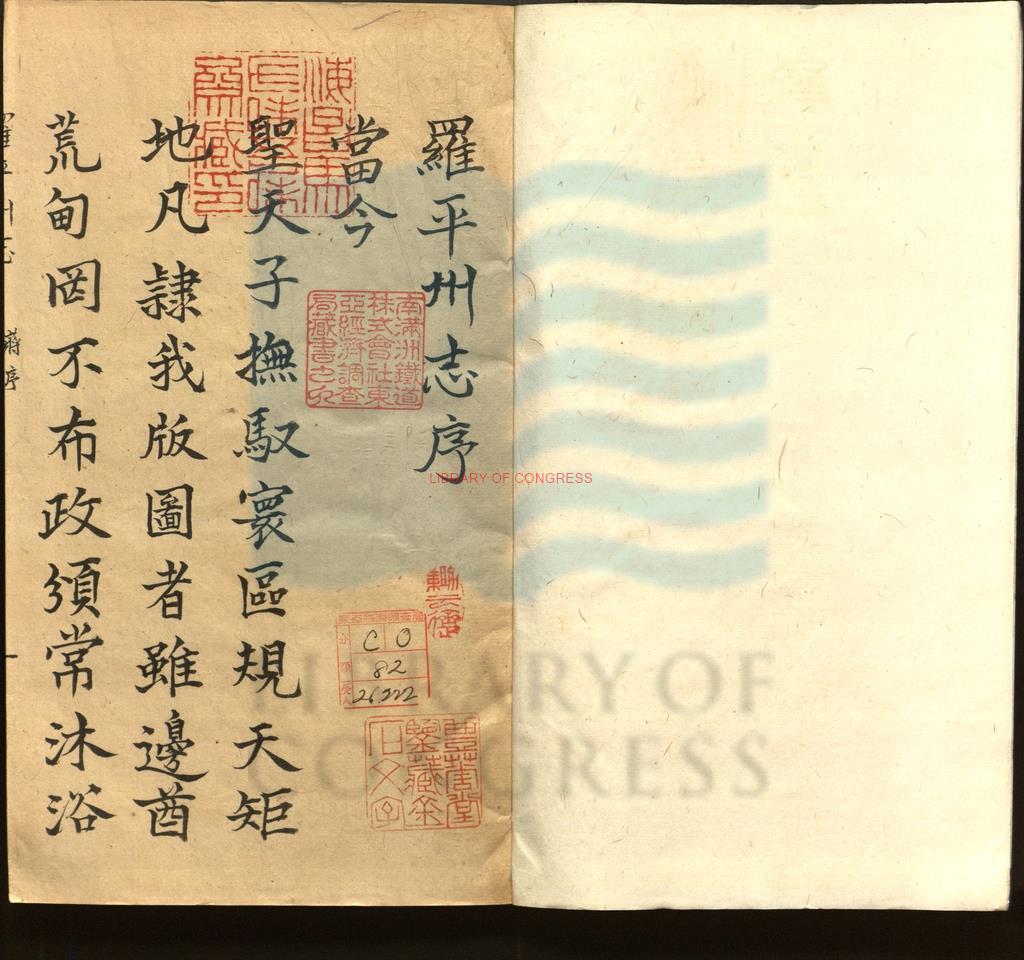 羅平州志序
當今
聖天子撫馭寰區規天矩
地凡隷我版圖者雖邊酋
荒甸罔不布政頒常沐浴
蔣序
南滿洲鐵道
株式會社東
亞經濟調查
局藏書之印
C O
82
26222
LIBRARY OF CONGRESS
LIBRARY OF
CONGRESS